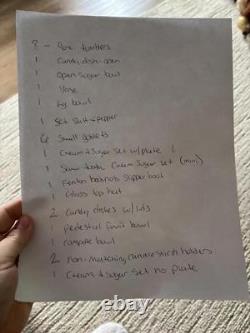 8 - 9oz. tumblers
1 Candy dish - open
1 Open Sugar bowl
1 Vase
1 bowl
1 Set Salt & pepper
6 Small goblets
1 Cream & Sugar set w/ plate
1 Saw tooth Cream Sugar set (mini)
1 Fenton boot slipper bowl
1 Glass top hat
2 Candy dishes w/ lids
1 pedestal fruit bowl
1 compote bowl
2 non-matching candlestick holders
1 Cream & Sugar set no plate